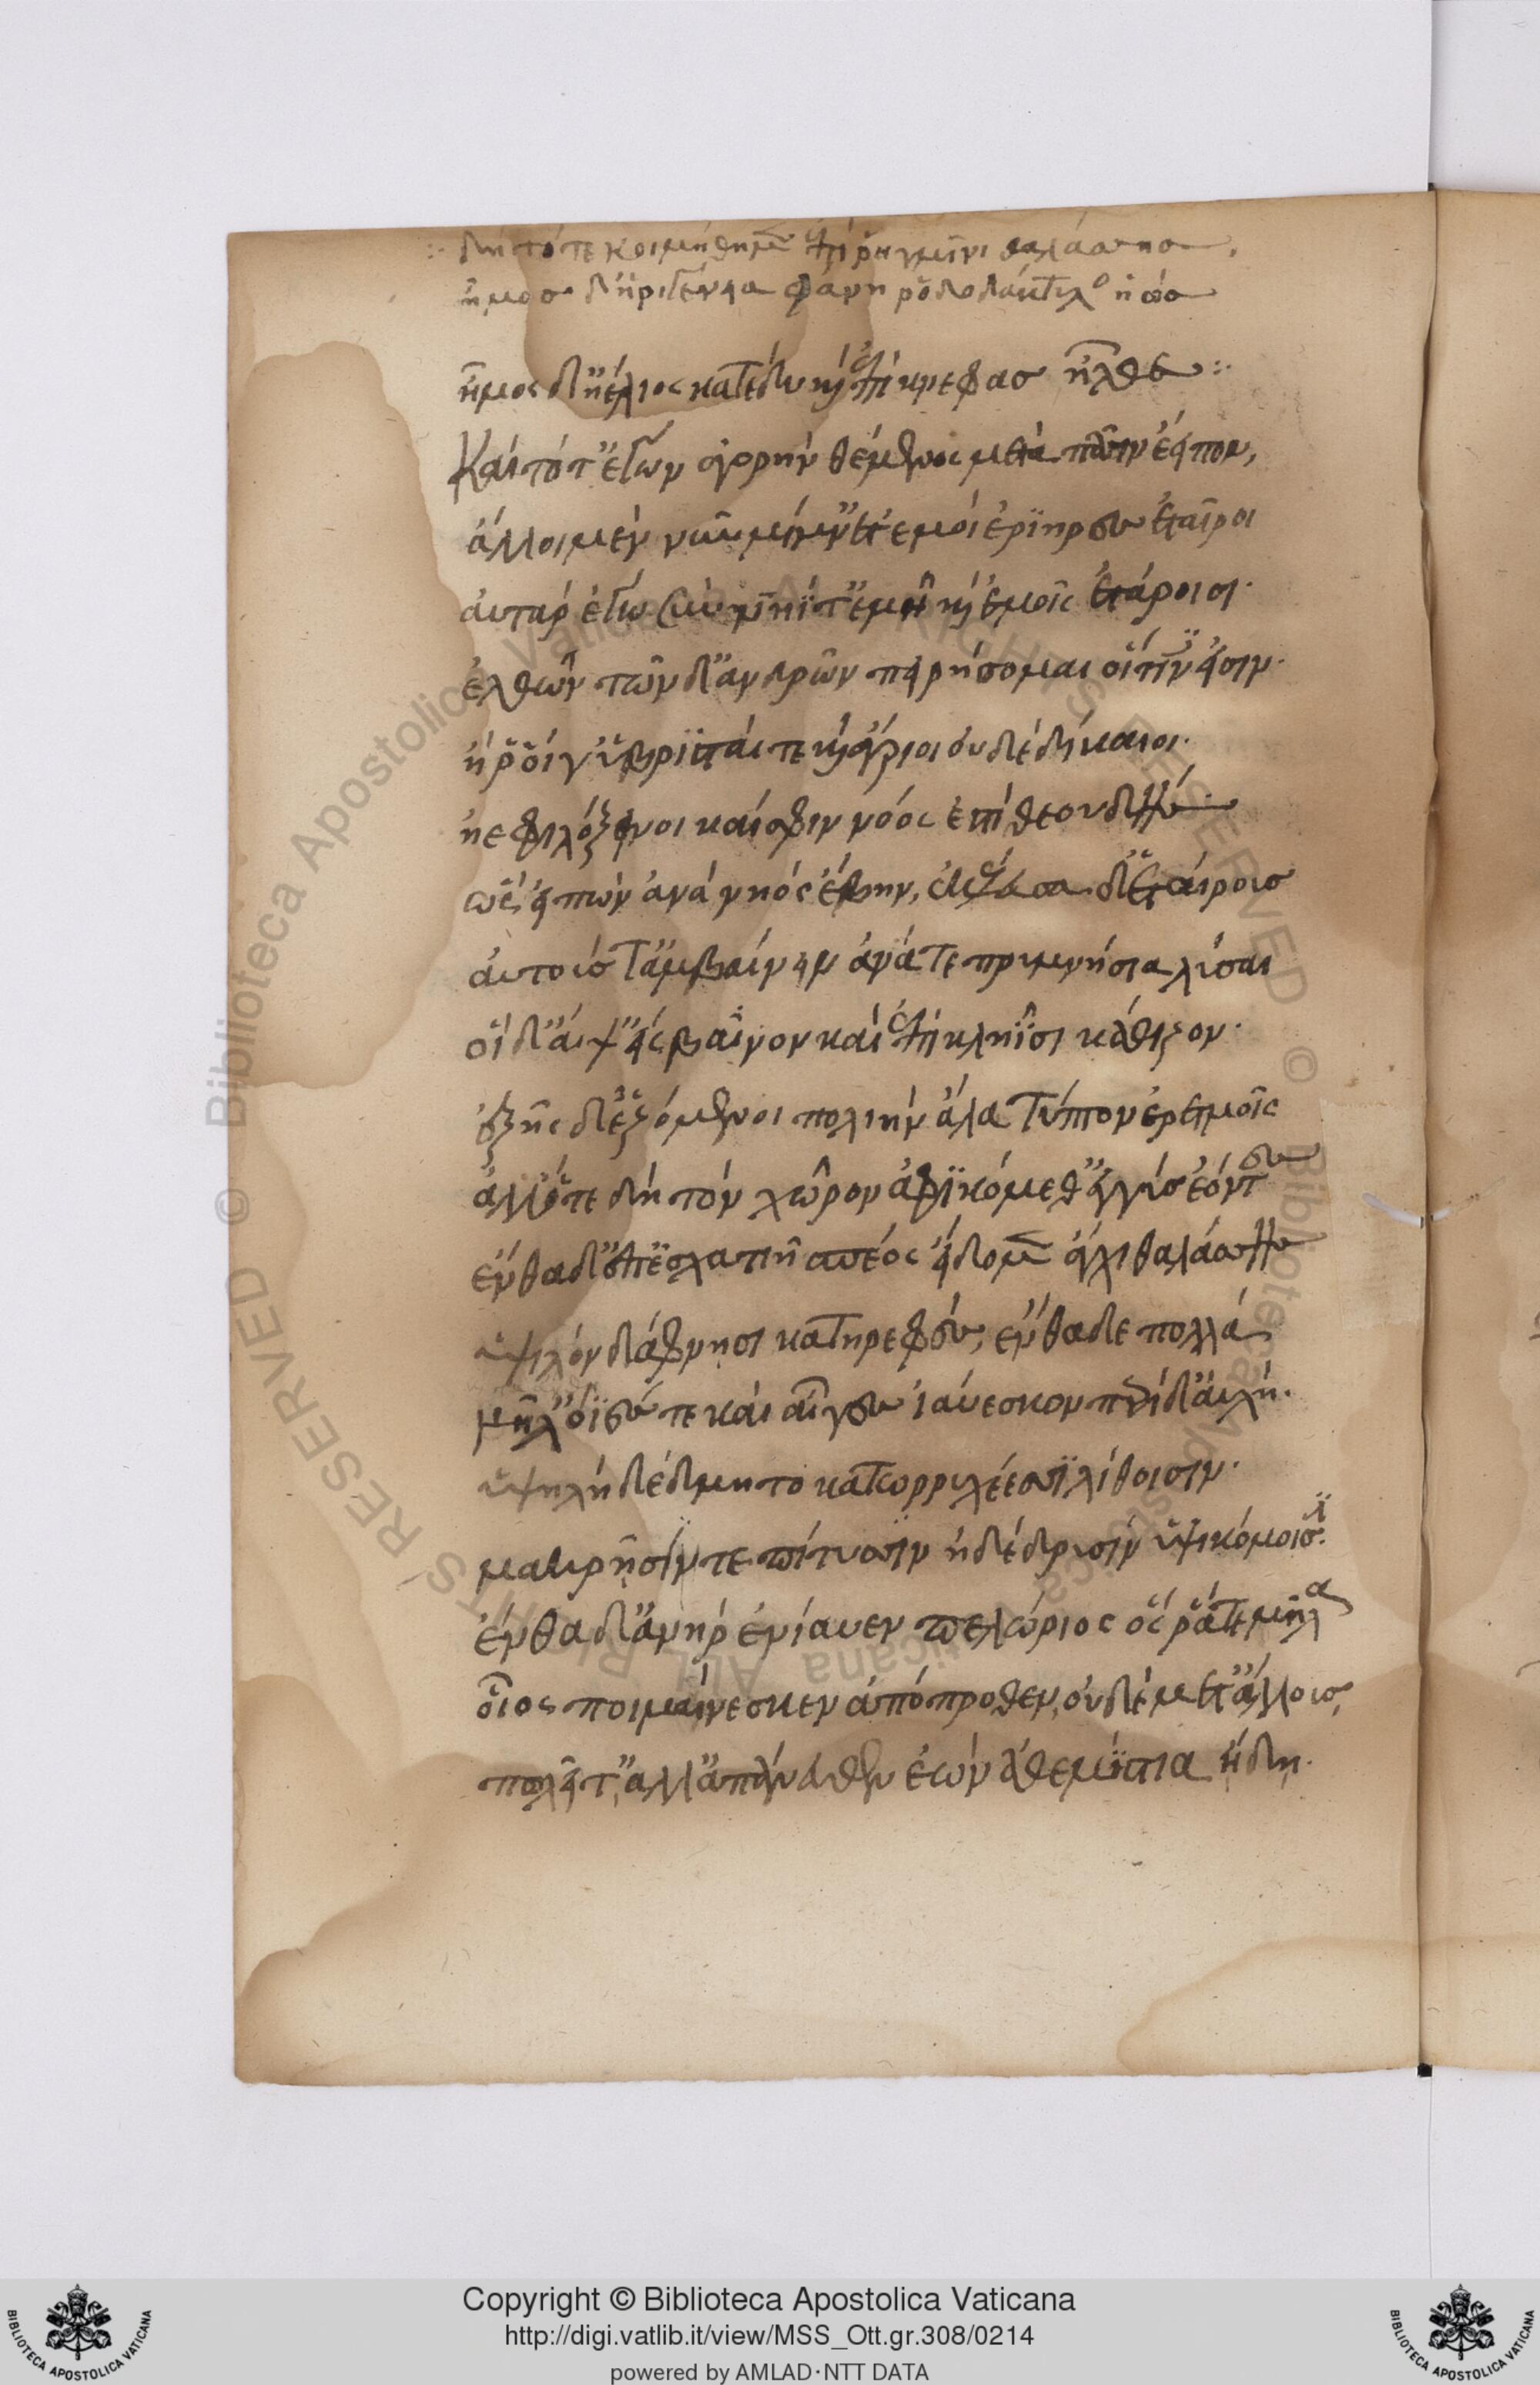 δὴ τότε κοιμήθημεν ἐπὶ ῥηγμῖνι θαλάσσησ,
ἦμοσ δ' ἠριγένεια φάνη ῥοδοδάκτυλος ἠώσ
ἦμος δ' ἠέλιος κατέδυ καὶ ἐπὶ κνέφασ ἦλθε :·
Καὶ τότ' ἐγὼν ἀγορὴν θέμενος μετὰ πᾶσιν ἔειπον,
ἄλλοι μὲν νῦν μίμνετ' ἐμοὶ ἐρίηρες ἑταῖροι
ἀυτὰρ ἐγὼ σὺν νηΐ τ' ἐμῆ καὶ ἐμοῖς ἑτάροισι·
ἐλθὼν τῶν δ' ἀνδρῶν πειρήσομαι οἵ τινες εἰσιν·
ἤ ῥ' οἵ γ' ὑβρισταί τε καὶ ἄγριοι ὀυδὲ δίκαιοι·
ἠε φιλόξεινοι καί σφιν νόος ἐστὶ θεουδής·
ὣς ἐιπὼν ἀνὰ νηὸς ἔβην, ἐκέλευσα δ' ἑταίροισ
ἀυτούσ τ' ἀμβαίνειν ἀνά τε πρυμνήσια λύσαι
οἱ δ' αἶψ' εἴσβαινον καὶ ἐπὶ κληῖσι κάθιζον·
ἑξῆς δ' ἑζόμενοι πολιὴν ἅλα τύπτον ἐρετμοῖς
ἀλλ' ὅτε δὴ τὸν χῶρον ἀφικόμεθ' ἐγγὺσ ἐόντα
ἔνθα δ' ἐπ' ἐσχατιῆ σπέος εἴδομεν ἄγχι θαλάσσης
ὑψηλὸν δάφνησι κατηρεφές, ἔνθα δε πολλὰ
μῆλ' ὄϊές τε καὶ αἶγες ἰαύεσκον περὶ δ' ἀυλὴ·
ὑψηλὴ δέδμητο κατωρρυχέεσσι λίθοισιν·
μακρῆσίν τε πίτυσσιν ἠδὲ δρυσὶν ὑψικόμοισι:
ἔνθα δ' ἀνὴρ ἐνίαυεν πελώριος ὅς ῥά τε μῆλα
οἶος ποιμαίνεσκεν ἀπόπροθεν, ὀυδὲ μετ' ἄλλουσ,
πωλεῖτ', ἀλλ' ἀπάνευθεν ἐὼν ἀθεμίστια ἤδη·
Copyright © Biblioteca Apostolica Vaticana
http://digi.vatlib.it/view/MSS_Ott.gr.308/0214
powered by AMLAD·NTT DATA